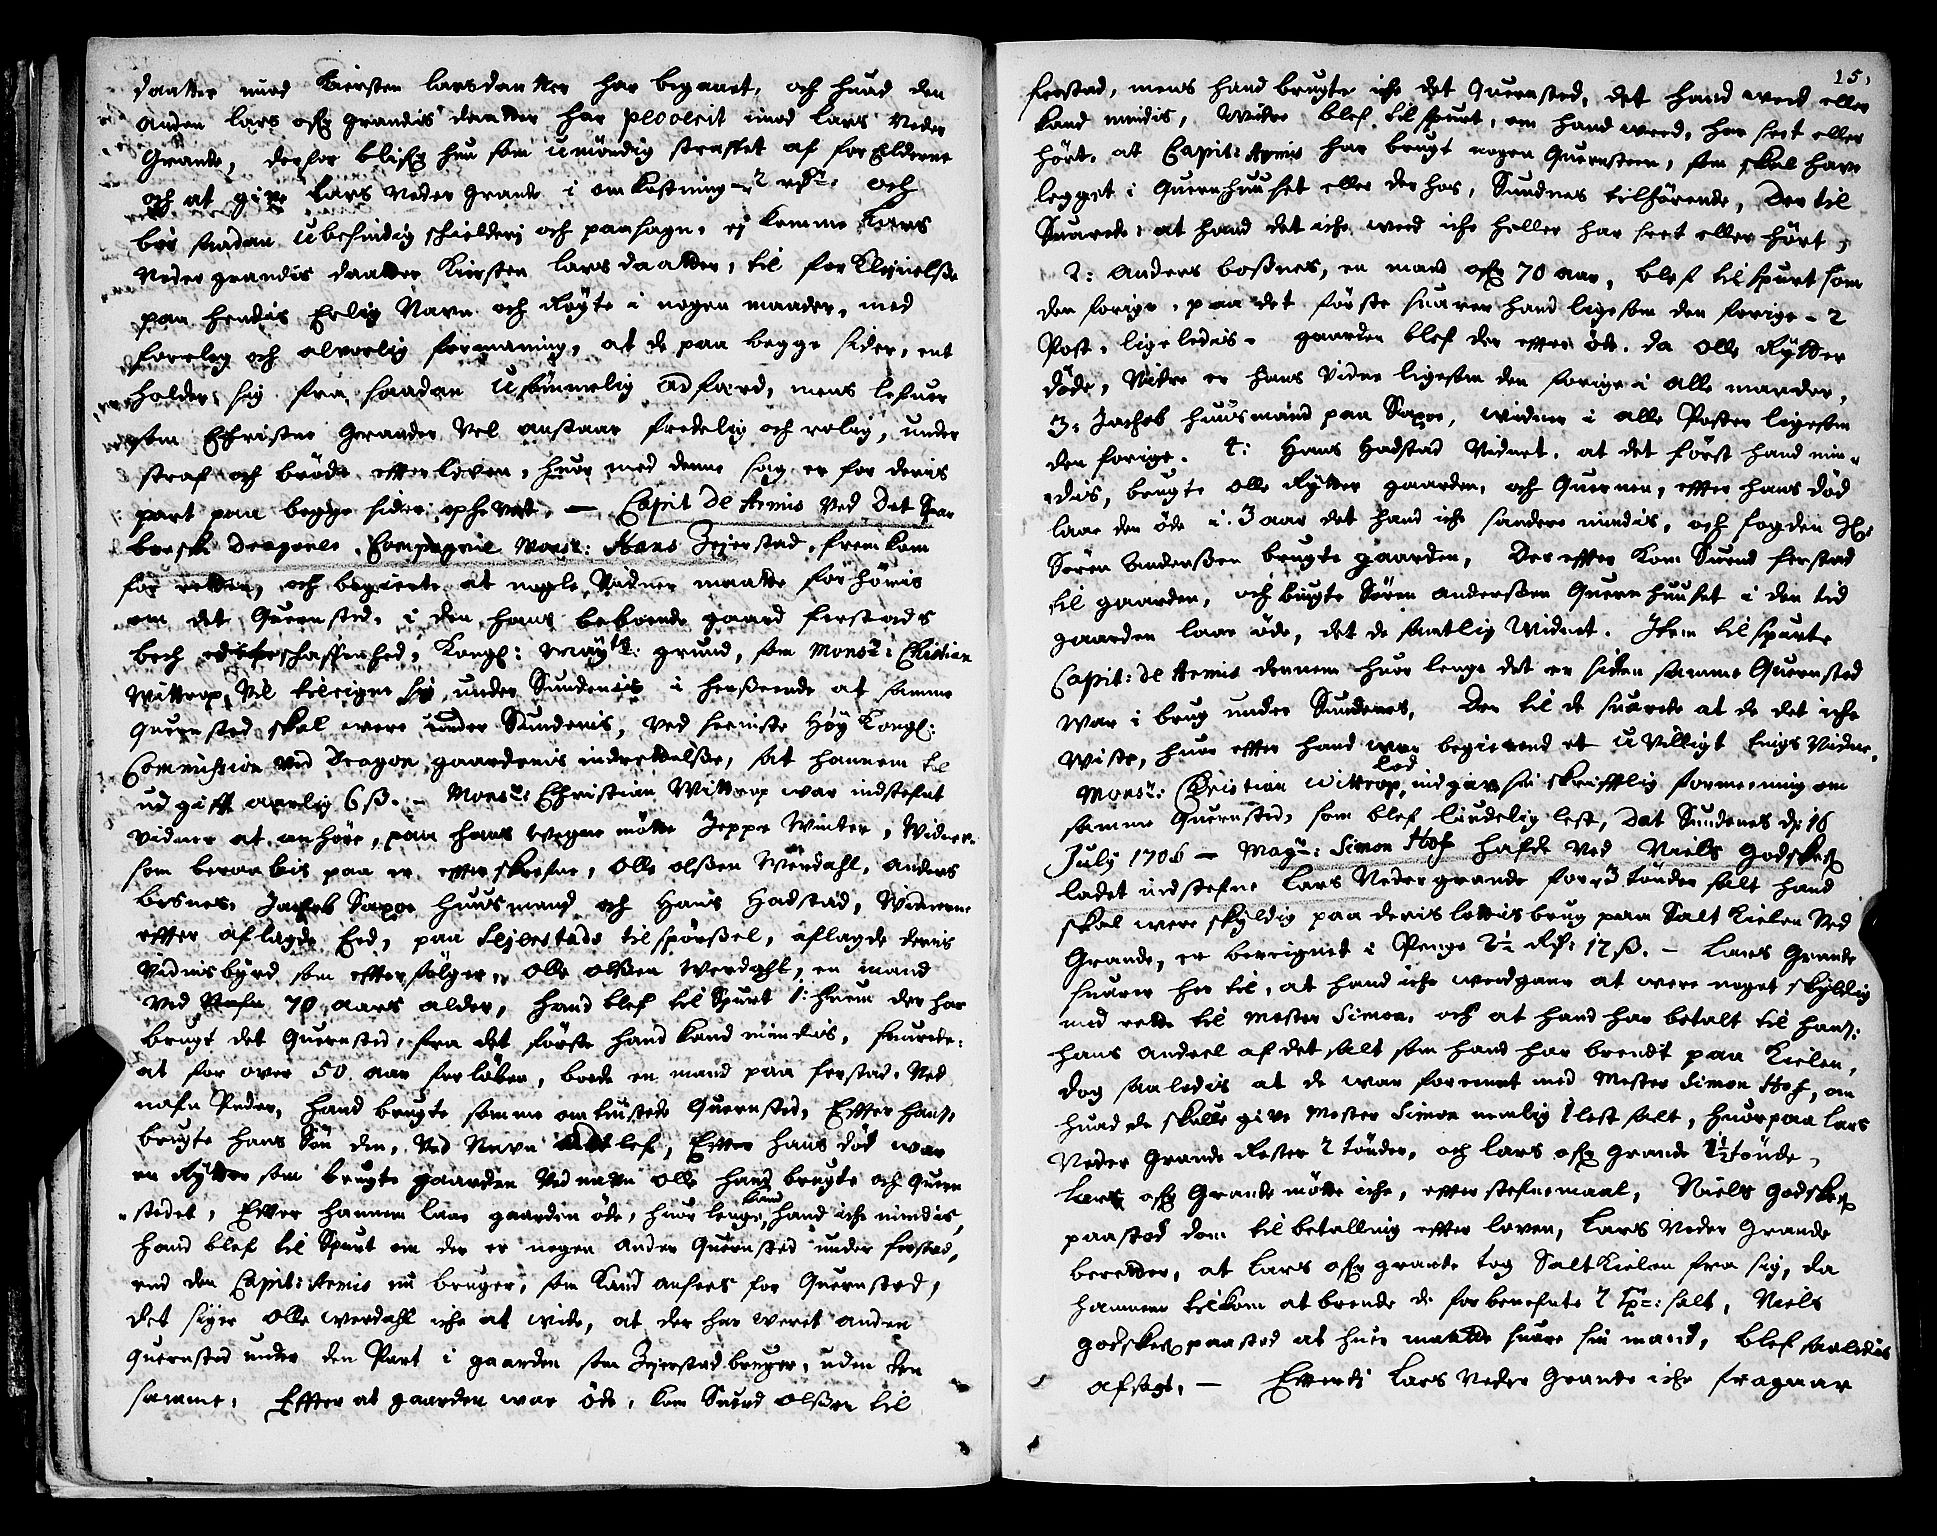 daatter imod Kiersten larsdaatter har begaaet, och huad den
anden lars øfr grandis daatter har imod lars Neder
Grande, derfor blifr hun som umöndig straffet af forElderne
och at give Lars Neder grande i omkostning 2 rdr. och
bör saadan Ubesindig schielderj och paasagn, ej komme Lars
Neder grandis daatter Kirsten larsdaatter, til forKleinelße
paa hendis Erlig Navn och Røgte i nogen maader, med
foreleg och alvorlig formaning, at de paa begge sider, ent
holder sig fra saadan Usömmelig adfærd, mens lefuer
som Christne Grander Vel anstaar fredelig och rolig, under
straf och bröde effter loven, huor med denne sag er for deris
part paa begge sider ophevet. — Capit de Armis ved Det Spar
boeske Dragone Compagnie Monsr: Hans Zejerstad, fremkom
for retten, och begierte at nogle Vidner maatte forhöris
om det Quernsted, i den hans beboende gaard ferstads
bech schaffenhed, Kongl: Maÿts: grund, som Monsr: Christian
Wittrop Vil tileigne sig under Sundenis i henßeende at samme
Quernsted skal were under Sundenis, ved seeniste Høy Kongl:
Commission ved Dragon gaardenis indrettelße, sat hannem til
udgifft aarlig 6 ß. - Monsr: Christian Wittrop war indstefnt
vidner at anhöre, paa hans vegne mötte Jeppe Winter, Widner
som beraabis paa er effterskrefne, Olle olßen Werdahl, Anders
bosnes, Jachob Saxoe huusmand och Hans Hadstad, Widnerne
effter aflagde Eed, paa Sejerstads tilspörßel, aflagde deris
Vidnisbyrd som effterfölger, Olle olßen Werdahl, en mand
ved 70 aars alder, hand blef tilspurt 1: huem der har
brugt det Quernsted, fra det förste hand kand mindis, suarede:
at for over 50 aar forlöben, boede en mand paa ferstad, Ved
nafn Peder, hand brugte samme omtuistede Quernsted, Effter hans,
brugte hans Sön den, Ved Navn lef, Effter hans död war
en Rytter som brugte gaarden Ved navn olle hand brugte och Quern
stedet, Effter hannem laae gaarden öde, huor lenge, kand hand iche mindis,
hand blef tilspurt om der er nogen anden Quernsted under ferstad,
end den Capit: Armis nu bruger, som kand ansees for Quernsted,
det siger olle werdahl iche at wide, at der har weret anden
Quernsted under den Part i gaarden som Zejerstad bruger, uden den
samme, Effter at gaarden war öde, kom Suend olßen til
15.
ferstad, mens hand brugte iche det Quernsted, det hand weed eller
kand mindis, Widre blef tilspurt, om hand weed, har seet eller
hört, at Capit: Armis har brugt nogen Quernsteen, som skal have
legget i Quernhuuset eller der hos, Sundnes tilhörende, Der til
Suarede, at hand det iche weed iche heller har seet eller hört,
2: Anders boßnes, en mand ofr 70 aar, blef tilspurt som
den forige, paa det förste suarer hand ligesom den forige - 2
Post, ligeledis, gaarden blef der effter öde, da olle Rytter
döde, Widre er hans Vidne ligesom den forige i alle maader,
3: Jachob huusmand paa Saxoe, widner i alle Poster ligesom
den forige. 4: Hans Hadstad Vidnet, at det först hand min-
dis, brugte olle Rytter gaarden, och Quernen, effter hans död
laae den öde i 3 aar det hand iche sandere mindis, och fogden Hr:
Sören Anderßen brugte gaarden, Der effter kom Suend ferstad
til gaarden, och brugte Sören Anderßen Quernhuuset i den tid
gaarden laae öde, det de samtlig Widnet. Item tilspurte
Capit: de Armis dennem huor lenge det er siden samme Quernsted
war i brug under Sundnes, Der til de suarede at de det iche
wiste, huor effter hand war begierend et uvilligt tings Vidne.
Monsr: Christian Wittrop, lod indgive sin skrifftlig formeening om
samme Quernsted, som blef liudelig lest, dat Sundenes d: 16
July 1706 — Magr: Simon Hof hafde ved Niels Godskes
ladet indstefne Lars Nedergrande for 3 tönder salt hand
skal were skyldig paa deris lottis brug paa Salt Kielen Ved
Grande, er beregnet i Penge 2½ rdr: 12 ß. — Lars Grande
suarer her til, at hand iche weedgaar at were noget skyldig
med rette til Mester Simon, och at hand har betalt til hans:
hans Andeel af det salt som hand har brendt paa Kielen,
dog saaledis at de war foreenet med Mester Simon Hof, om
huad de skulle give Mester Simon nemlig 1 lest salt, huorpaa lars
Neder Grande Rester 2 tönder, och lars ofr grande 1½ tönde,
Lars ofr Grande mötte iche, effter stefnemaal, Niels Godskes
paastod dom til betalling effter loven, Lars Neder Grande
beretter, at Lars ofr grande tog Salt Kielen fra sig, da
hannem tilkom at brende de forbenefnte 2 Tr: salt, Niels
Godskes paastod at huer maatte suare sin mand, blef saaledis
afsagt, — Efterdj Lars Neder Grande iche fragaar